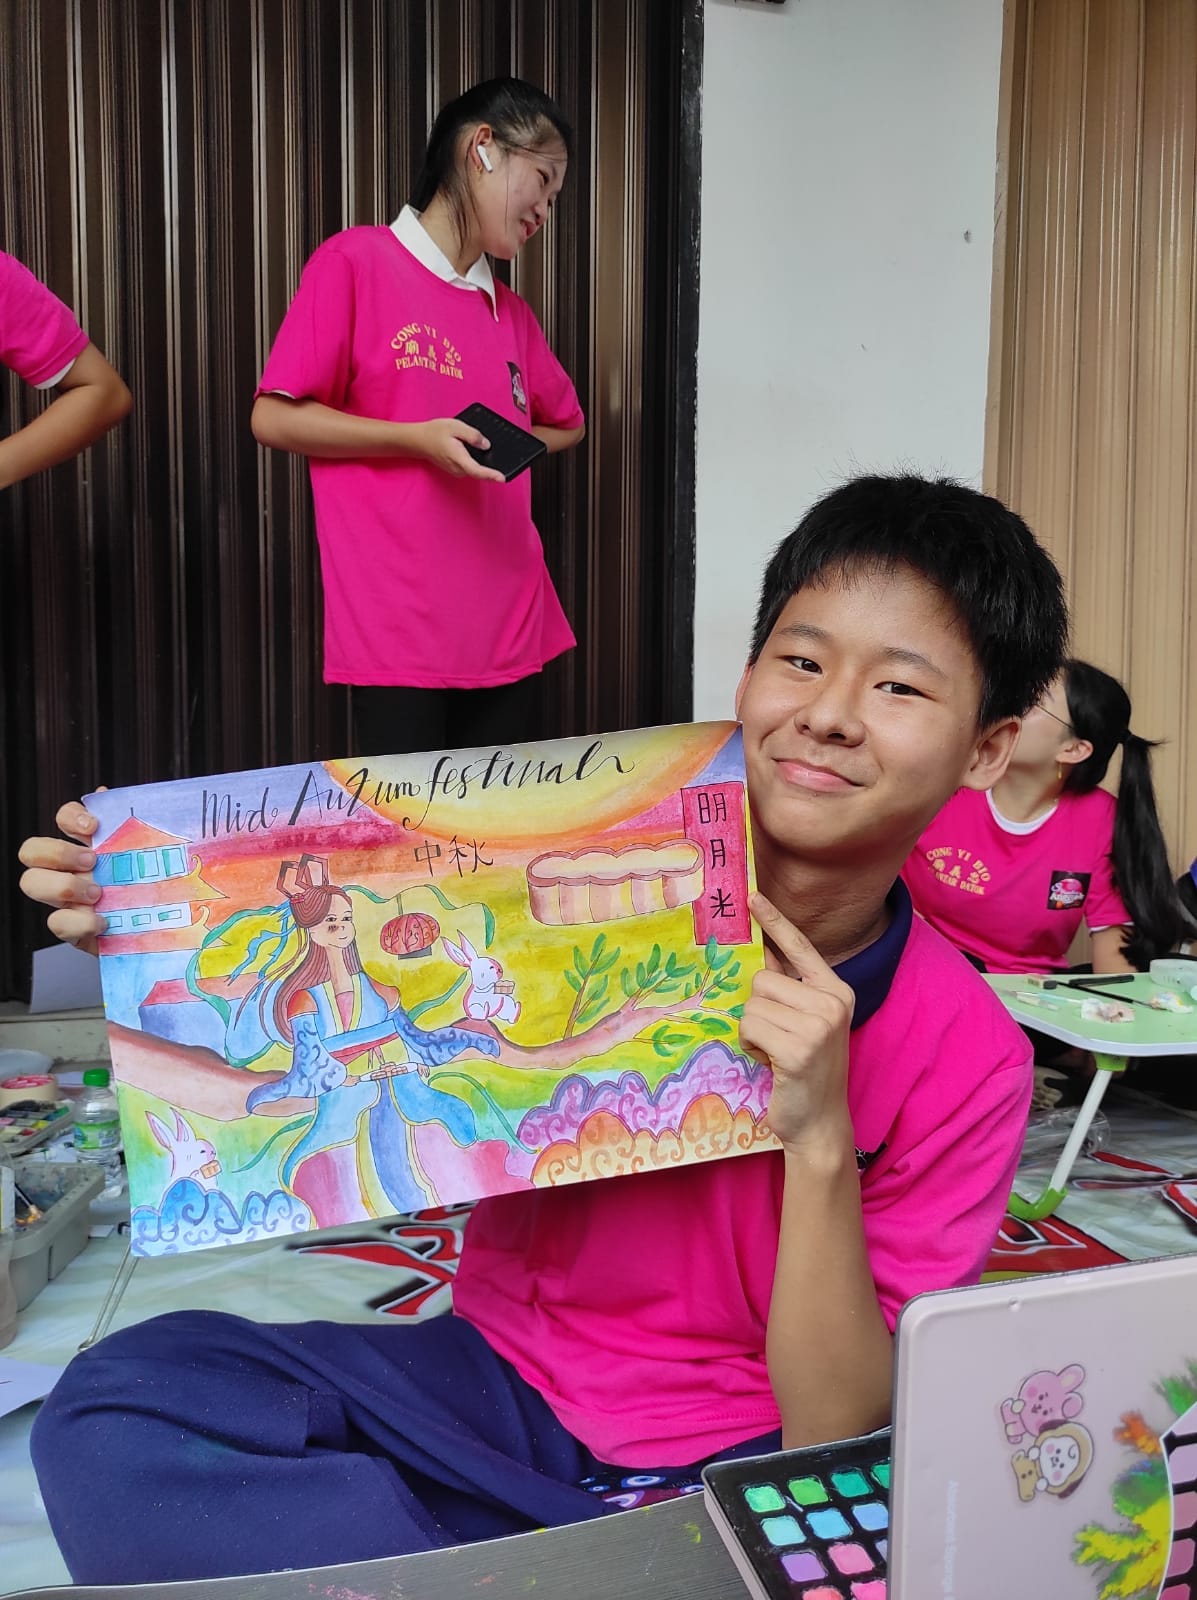 CONG YI BIO
廟義忠
PELANTAR DATOK
Mid AuZum festival
中秋
明月光
CONG YI BIO
廟義忠
PELANTAR DATOK